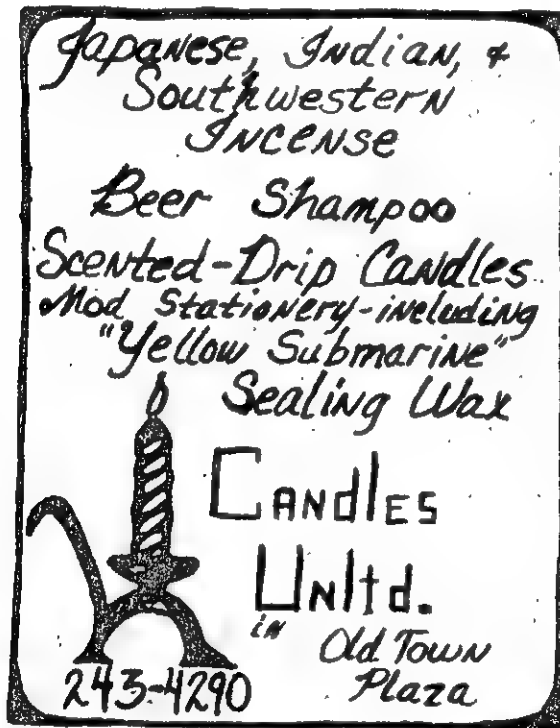 Japanese, Indian, &
Southwestern
Incense
Beer Shampoo
Scented-Drip Candles
Mod Stationery-including
"Yellow Submarine"
Sealing Wax
Candles
Unltd.
in Old Town
Plaza
243-4290